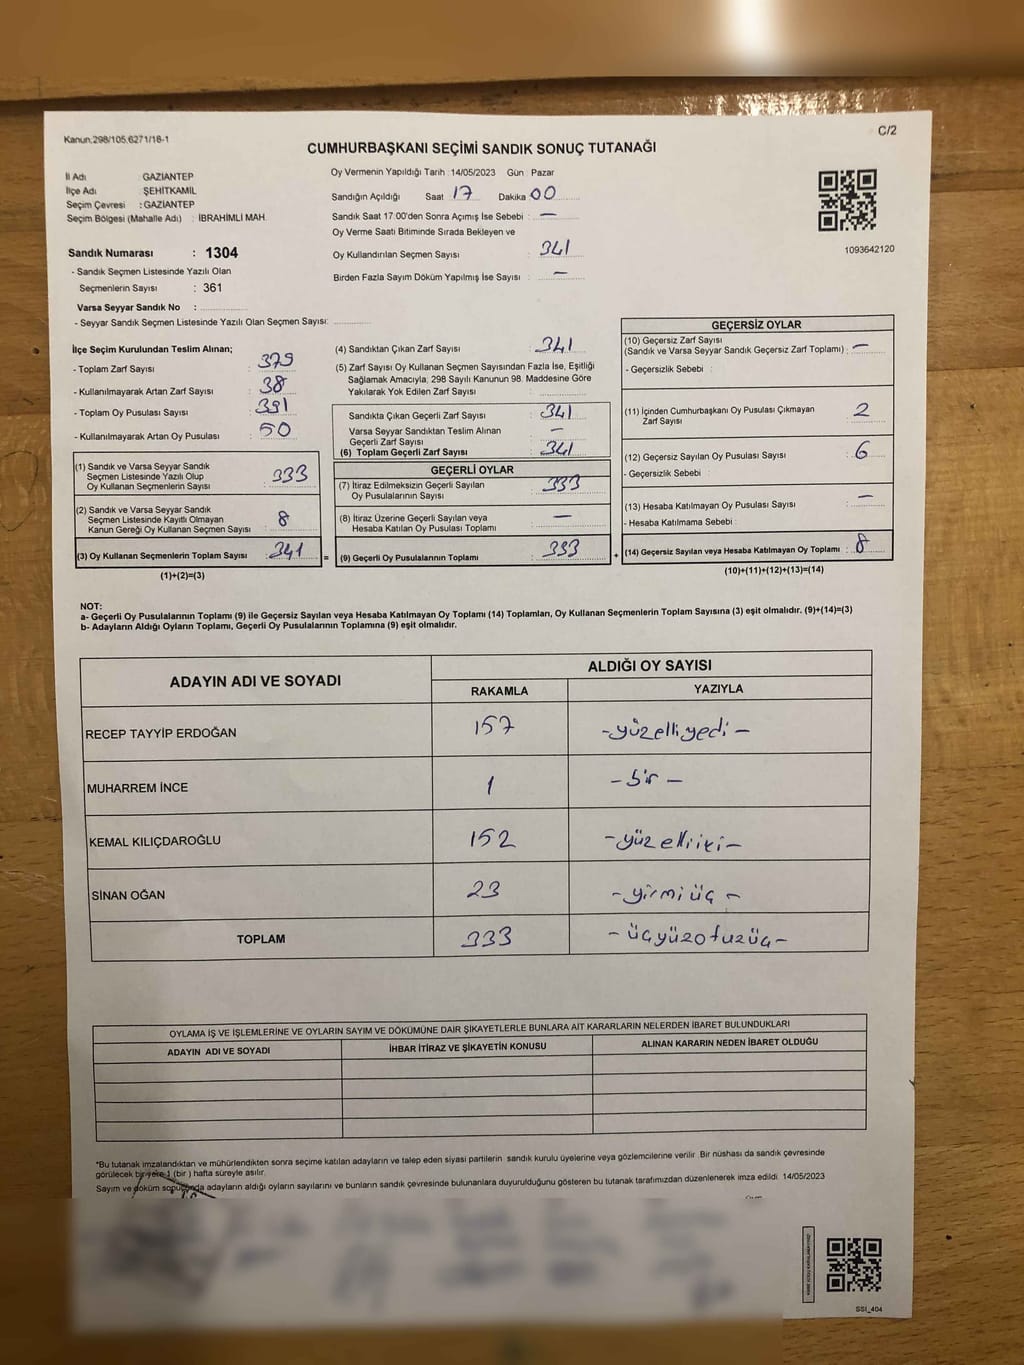 Kanun.298/105,6271/18-1
C/2
CUMHURBAŞKANI SEÇİMİ SANDIK SONUÇ TUTANAĞI
İl Adı : GAZİANTEP
İlçe Adı : ŞEHİTKAMİL
Seçim Çevresi : GAZİANTEP
Seçim Bölgesi (Mahalle Adı) : İBRAHİMLİ MAH.
Oy Vermenin Yapıldığı Tarih : 14/05/2023 Gün : Pazar
Sandığın Açıldığı Saat 17 Dakika 00
Sandık Saat 17:00'den Sonra Açımış İse Sebebi : —
Oy Verme Saati Bitiminde Sırada Bekleyen ve
Oy Kullandırılan Seçmen Sayısı : 341
Birden Fazla Sayım Döküm Yapılmış İse Sayısı : —
1093642120
Sandık Numarası : 1304
- Sandık Seçmen Listesinde Yazılı Olan
Seçmenlerin Sayısı : 361
Varsa Seyyar Sandık No :
- Seyyar Sandık Seçmen Listesinde Yazılı Olan Seçmen Sayısı:
İlçe Seçim Kurulundan Teslim Alınan;
- Toplam Zarf Sayısı : 379
- Kullanılmayarak Artan Zarf Sayısı : 38
- Toplam Oy Pusulası Sayısı : 391
- Kullanılmayarak Artan Oy Pusulası : 50
(1) Sandık ve Varsa Seyyar Sandık
Seçmen Listesinde Yazılı Olup
Oy Kullanan Seçmenlerin Sayısı : 333
(2) Sandık ve Varsa Seyyar Sandık
Seçmen Listesinde Kayıtlı Olmayan
Kanun Gereği Oy Kullanan Seçmen Sayısı : 8
(3) Oy Kullanan Seçmenlerin Toplam Sayısı : 341
(1)+(2)=(3)
(4) Sandıktan Çıkan Zarf Sayısı : 341
(5) Zarf Sayısı Oy Kullanan Seçmen Sayısından Fazla İse, Eşitliği
Sağlamak Amacıyla; 298 Sayılı Kanunun 98. Maddesine Göre
Yakılarak Yok Edilen Zarf Sayısı :
Sandıkta Çıkan Geçerli Zarf Sayısı : 341
Varsa Seyyar Sandıktan Teslim Alınan
Geçerli Zarf Sayısı : —
(6) Toplam Geçerli Zarf Sayısı : 341
GEÇERLİ OYLAR
(7) İtiraz Edilmeksizin Geçerli Sayılan
Oy Pusulalarının Sayısı : 333
(8) İtiraz Üzerine Geçerli Sayılan veya
Hesaba Katılan Oy Pusulası Toplamı : —
= (9) Geçerli Oy Pusulalarının Toplamı : 333 +
GEÇERSİZ OYLAR
(10) Geçersiz Zarf Sayısı
(Sandık ve Varsa Seyyar Sandık Geçersiz Zarf Toplamı) : —
- Geçersizlik Sebebi :
(11) İçinden Cumhurbaşkanı Oy Pusulası Çıkmayan
Zarf Sayısı : 2
(12) Geçersiz Sayılan Oy Pusulası Sayısı : 6
- Geçersizlik Sebebi :
(13) Hesaba Katılmayan Oy Pusulası Sayısı : —
- Hesaba Katılmama Sebebi :
(14) Geçersiz Sayılan veya Hesaba Katılmayan Oy Toplamı : 8
(10)+(11)+(12)+(13)=(14)
NOT:
a- Geçerli Oy Pusulalarının Toplamı (9) ile Geçersiz Sayılan veya Hesaba Katılmayan Oy Toplamı (14) Toplamları, Oy Kullanan Seçmenlerin Toplam Sayısına (3) eşit olmalıdır. (9)+(14)=(3)
b- Adayların Aldığı Oyların Toplamı, Geçerli Oy Pusulalarının Toplamına (9) eşit olmalıdır.
ADAYIN ADI VE SOYADI ALDIĞI OY SAYISI
RAKAMLA YAZIYLA
RECEP TAYYİP ERDOĞAN 157 -yüzelliyedi-
MUHARREM İNCE 1 -bir-
KEMAL KILIÇDAROĞLU 152 -yüzelliiki-
SİNAN OĞAN 23 -yirmiüç-
TOPLAM 333 -üçyüzotuzüç-
OYLAMA İŞ VE İŞLEMLERİNE VE OYLARIN SAYIM VE DÖKÜMÜNE DAİR ŞİKAYETLERLE BUNLARA AİT KARARLARIN NELERDEN İBARET BULUNDUKLARI
ADAYIN ADI VE SOYADI İHBAR İTİRAZ VE ŞİKAYETİN KONUSU ALINAN KARARIN NEDEN İBARET OLDUĞU
*Bu tutanak imzalandıktan ve mühürlendikten sonra seçime katılan adayların ve talep eden siyasi partilerin sandık kurulu üyelerine veya gözlemcilerine verilir. Bir nüshası da sandık çevresinde
görülecek bir yere 1 (bir) hafta süreyle asılır.
Sayım ve döküm sonucunda adayların aldığı oyların sayılarını ve bunların sandık çevresinde bulunanlara duyurulduğunu gösteren bu tutanak tarafımızdan düzenlenerek imza edildi. 14/05/2023
SSI_404